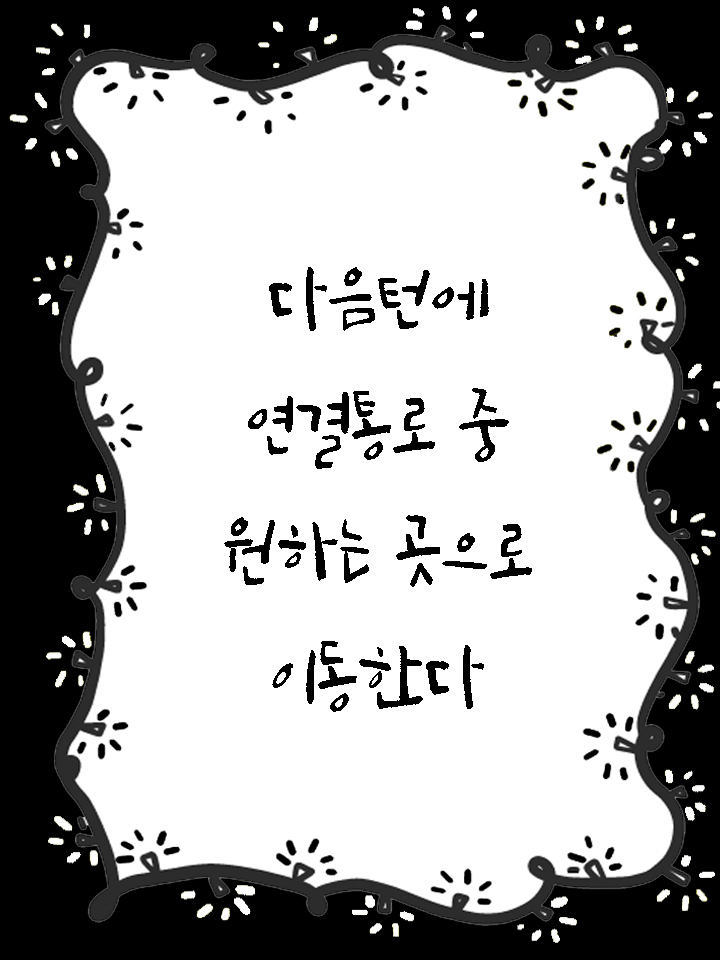 다음턴에
연결통로 중
원하는 곳으로
이동한다